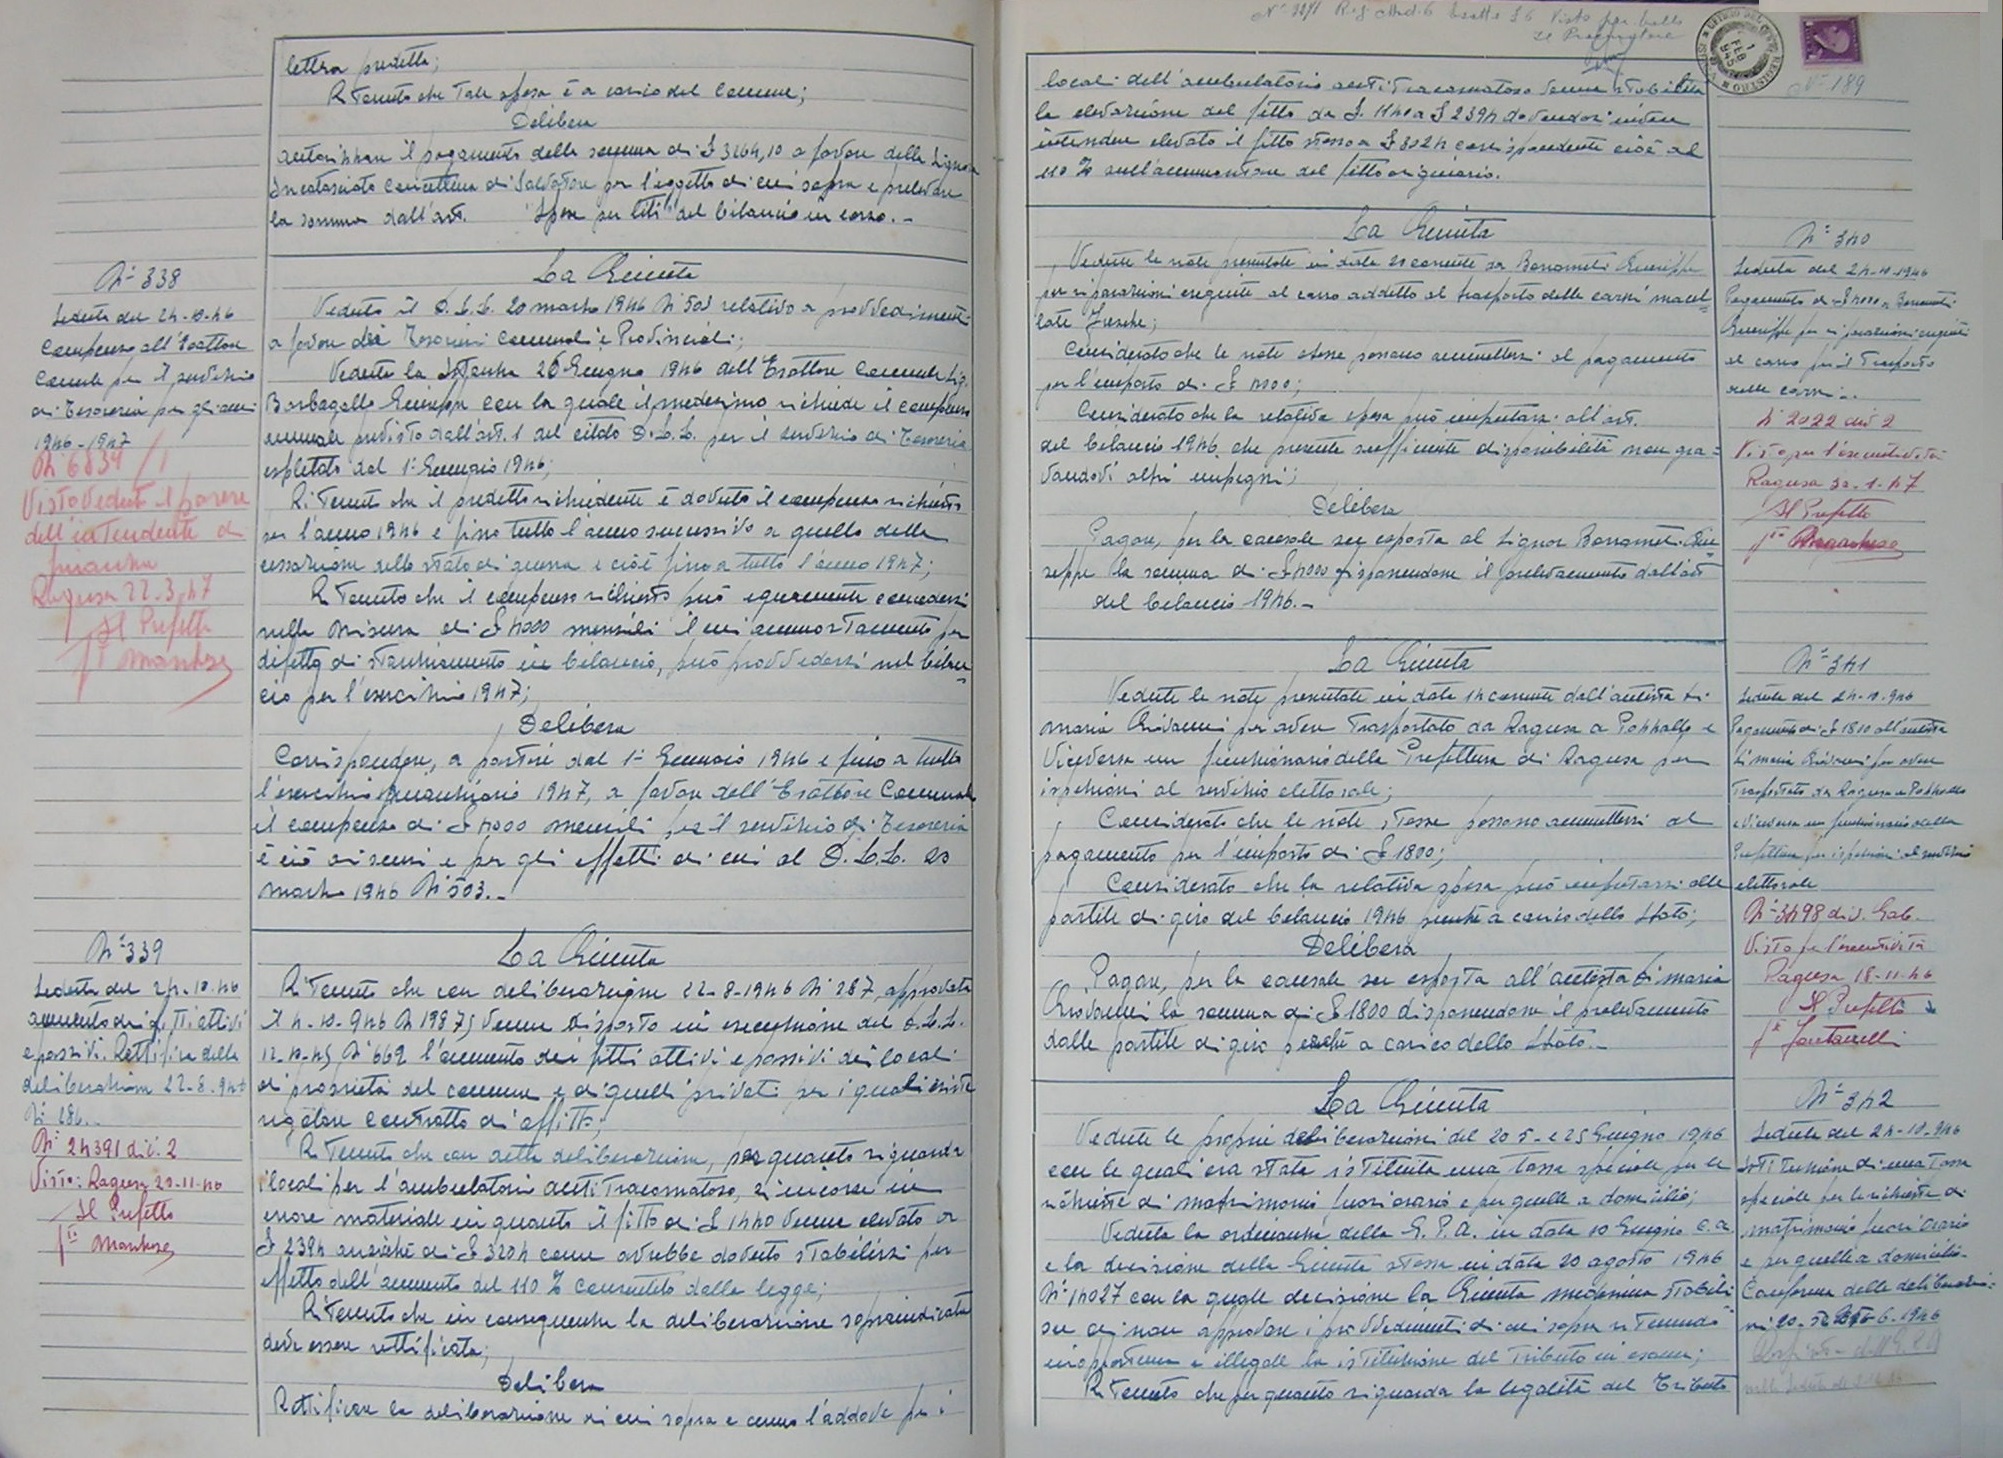 lettera predetta;
Ritenuto che tale spesa è a carico del Comune;
Delibera
autorizzare il pagamento della somma di £ 3264,10 a favore della Signora
Incatasciato Concettina di Salvatore per l'oggetto di cui sopra e prelevare
la somma dall'art. "Spese per liti" del bilancio in corso. -
N° 338
Seduta del 24-10-46
Compenso all'Esattore
Comunale per il servizio
di Tesoreria per gli anni
1946-1947
N° 6834/1
Visto Veduto il parere
dell'intendente di
finanza
Ragusa 22.3.47
Il Prefetto
La Giunta
Veduto il D.L.L. 20 marzo 1946 N° 503 relativo a provvedimenti
a favore dei Tesorieri Comunali e Provinciali;
Veduta la istanza 26 Giugno 1946 dell'Esattore Comunale Sig.
Barbagallo Giuseppe con la quale il medesimo richiede il compenso
annuale previsto dall'art. 1 del citato D.L.L. per il servizio di Tesoreria
espletato dal 1° Gennaio 1946;
Ritenuto che il predetto richiedente è dovuto il compenso richiesto
per l'anno 1946 e fino tutto l'anno successivo a quello della
cessazione dello stato di guerra e cioè fino a tutto l'anno 1947;
Ritenuto che il compenso richiesto può equamente concedersi
nella misura di £ 4000 mensili il cui ammontamento per
difetto di stanziamento in bilancio, può provvedersi nel bilan=
cio per l'esercizio 1947;
Delibera
Corrispondere, a partire dal 1° Gennaio 1946 e fino a tutto
l'esercizio finanziario 1947, a favore dell'Esattore Comunale
il compenso di £ 4000 mensili per il servizio di Tesoreria
e ciò ai sensi e per gli effetti di cui al D.L.L. 20
marzo 1946 N° 503. -
N° 339
Seduta del 24-10-46
aumento dei fitti attivi
e passivi. Rettifica della
deliberazione 22-8-946
N° 286.
N° 24391 div. 2
Visto: Ragusa 29-11-46
Il Prefetto
La Giunta
Ritenuto che con deliberazione 22-8-1946 N° 287, approvata
il 4-10-946 N 19875 venne disposto in esecuzione del D.L.L.
12-10-45 N° 669 l'aumento dei fitti attivi e passivi dei locali
di proprietà del comune e di quelli privati per i quali esiste
regolare contratto di affitto;
Ritenuto che con detta deliberazione, per quanto riguarda
i locali per l'ambulatorio antitracomatoso, si incorse in
errore materiale in quanto il fitto di £ 1440 venne elevato a
£ 2394 anzichè di £ 3204 come avrebbe dovuto stabilirsi per
effetto dell'aumento del 110 % consentito dalla legge;
Ritenuto che in conseguenza la deliberazione sopraindicata
deve essere rettificata;
Delibera
Rettificare la deliberazione di cui sopra e come l'addove per i
Visto per bollo
Il Procuratore
N° 189
locali dell'ambulatorio antitracomatoso venne stabilita
la elevazione del fitto da £. 1140 a £ 2394 dovendosi invece
intendere elevato il fitto stesso a £ 3024 corrispondente cioè al
110 % sull'ammontare del fitto originario.
La Giunta
Vedute le note presentate in data 20 corrente da Bonometti Giuseppe
per riparazioni eseguite al carro addetto al trasporto delle carni macel=
late fresche;
Considerato che le note stesse possano ammettersi al pagamento
per l'importo di £ 4000;
Considerato che la relativa spesa può imputarsi all'art.
del bilancio 1946 che presenta sufficiente disponibilità non gra=
vandovi altri impegni;
Delibera
Pagare, per la causale su esposta al Signor Bonometti Giu=
seppe la somma di £ 4000 disponendone il prelevamento dall'art
del bilancio 1946. -
N° 340
Seduta del 24-10-1946
Pagamento di £ 4000 a Bonometti
Giuseppe per riparazioni eseguite
al carro per il trasporto
delle carni. -
N° 2022 div 2
Visto per l'esecutività
Ragusa 30-1-47
Il Prefetto
La Giunta
Vedute le note presentate in data 14 corrente dall'autista Di
maria Giovanni per avere trasportato da Ragusa a Pozzallo e
viceversa un funzionario della Prefettura di Ragusa per
ispezioni al servizio elettorale;
Considerato che le note stesse possano ammettersi al
pagamento per l'importo di £ 1800;
Considerato che la relativa spesa può imputarsi alle
partite di giro del bilancio 1946 perchè a carico dello Stato;
Delibera
Pagare, per la causale su esposta all'autista Dimaria
Giovanni la somma di £ 1800 disponendone il prelevamento
dalle partite di giro perchè a carico dello Stato. -
N° 341
Seduta del 24-10-946
Pagamento di £ 1800 all'autista
Dimaria Giovanni per avere
trasportato da Ragusa a Pozzallo
e viceversa un funzionario della
Prefettura per ispezioni al servizio
elettorale
N° 3498 div. Gab.
Visto per l'esecutività
Ragusa 18-11-46
Il Prefetto
La Giunta
Vedute le proprie deliberazioni del 20 5 - e 25 Giugno 1946
con le quali era stata istituita una tassa speciale per le
richieste di matrimonio fuori orario e per quelle a domicilio;
Veduta la ordinanza della G.P.A. in data 10 Giugno c.a.
e la decisione della Giunta stessa in data 20 agosto 1946
N° 14027 con la quale decisione la Giunta medesima stabili=
sce di non approvare i provvedimenti di cui sopra ritenendo
inopportuna e illegale la istituzione del tributo in esame;
Ritenuto che per quanto riguarda la legalità del Tributo
N° 342
Seduta del 24-10-946
Istituzione di una tassa
speciale per le richieste di
matrimonio fuori orario
e per quelle a domicilio -
Conferma delle deliberazio=
ni 20-5 e 25-6-1946